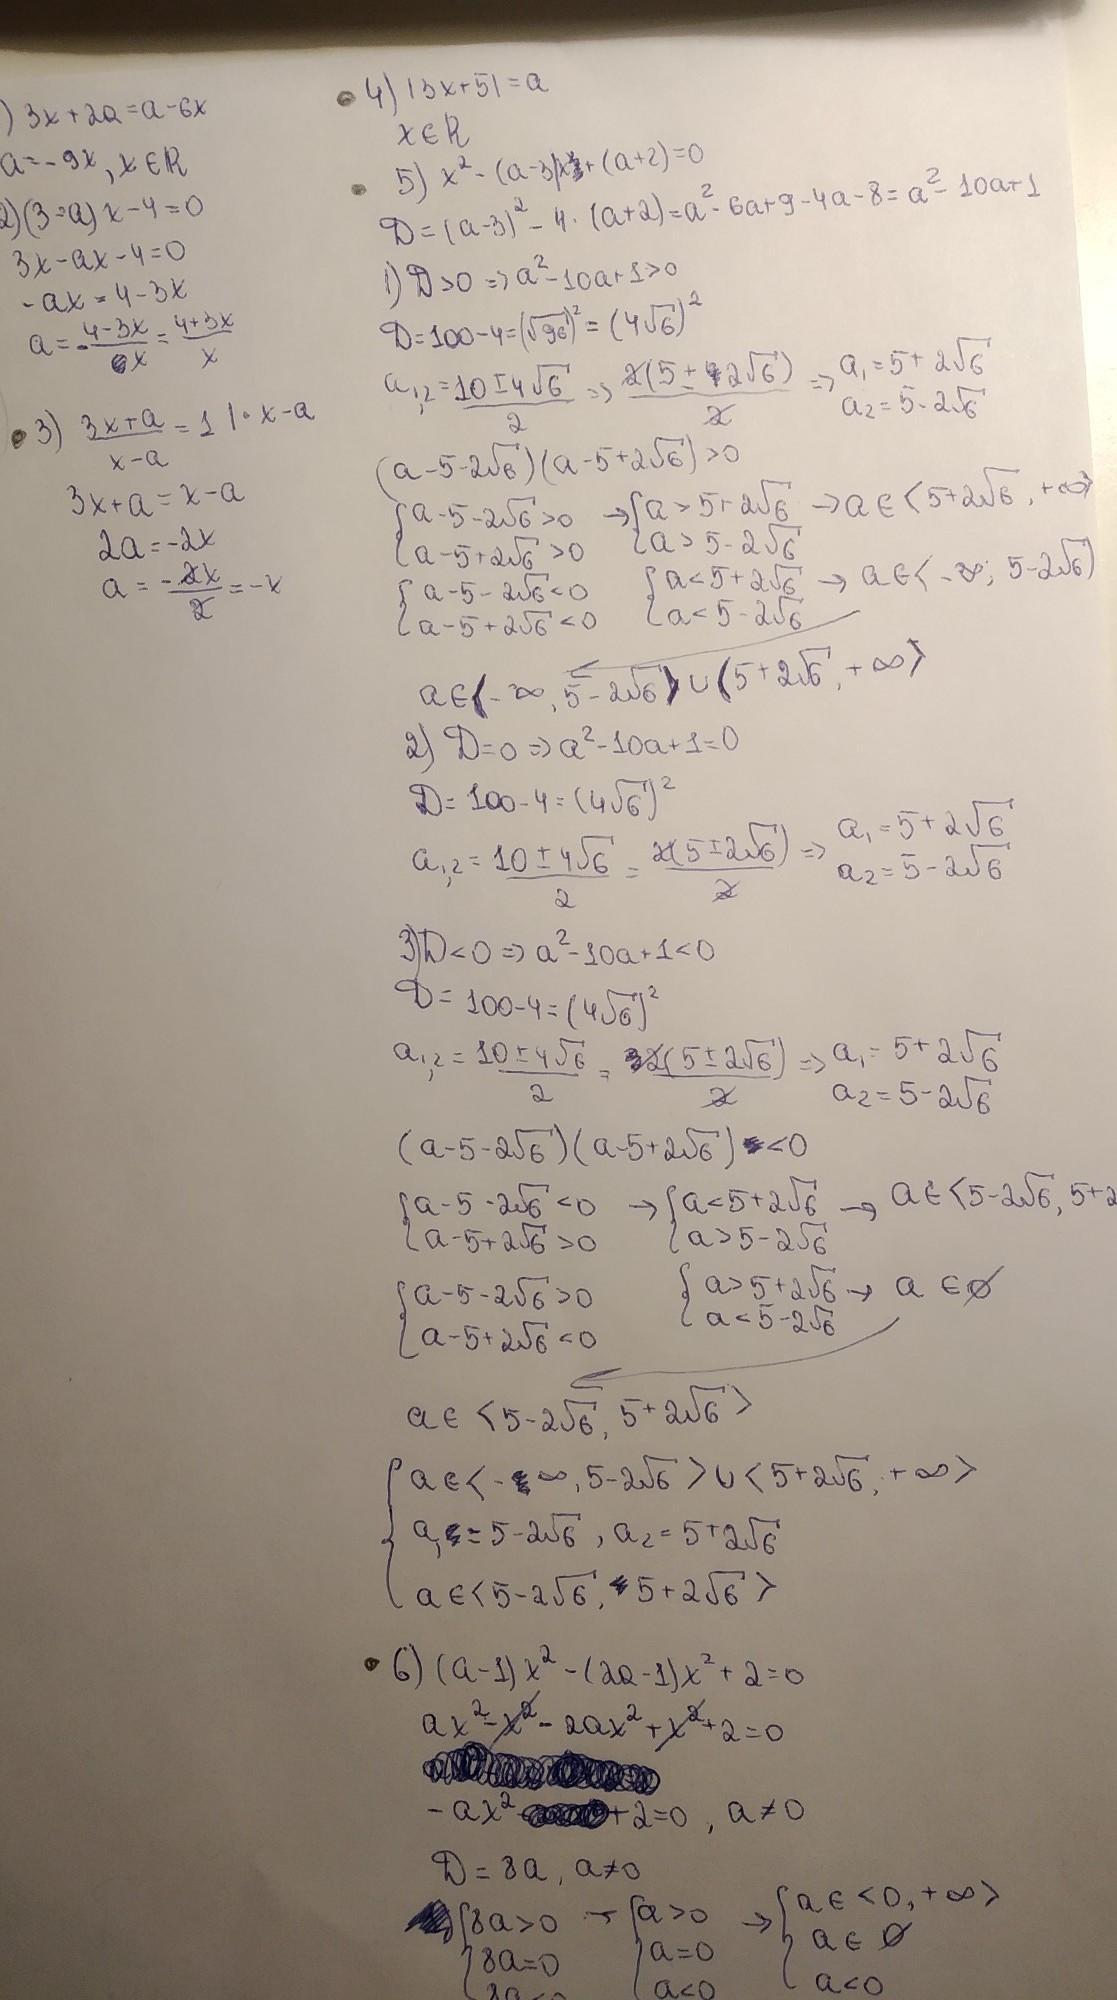 ) 3x+2a=a-6x
a=-9x, x∈R
2) (3-a)x-4=0
3x-ax-4=0
-ax=4-3x
a=-\frac{4-3x}{x}=\frac{4+3x}{x}
3) \frac{3x+a}{x-a}=1 |· x-a
3x+a=x-a
2a=-2x
a=\frac{-2x}{2}=-x
4) |3x+5|=a
x∈R
5) x²-(a-3)x+(a+2)=0
D=(a-3)²-4·(a+2)=a²-6a+9-4a-8=a²-10a+1
1) D>0 => a²-10a+1>0
D=100-4=(√96)²=(4√6)²
a₁,₂=\frac{10±4√6}{2} => \frac{2(5±2√6)}{2} => a₁=5+2√6
a₂=5-2√6
(a-5-2√6)(a-5+2√6)>0
{a-5-2√6>0 → {a>5+2√6 → a∈<5+2√6, +∞>
{a-5+2√6>0 {a>5-2√6
{a-5-2√6<0 {a<5+2√6 → a∈<-∞; 5-2√6)
{a-5+2√6<0 {a<5-2√6
a∈(-∞, 5-2√6)∪(5+2√6, +∞>
2) D=0 => a²-10a+1=0
D=100-4=(4√6)²
a₁,₂=\frac{10±4√6}{2}=\frac{2(5±2√6)}{2} => a₁=5+2√6
a₂=5-2√6
3) D<0 => a²-10a+1<0
D=100-4=(4√6)²
a₁,₂=\frac{10±4√6}{2}=\frac{2(5±2√6)}{2} => a₁=5+2√6
a₂=5-2√6
(a-5-2√6)(a-5+2√6)<0
{a-5-2√6<0 → {a<5+2√6 → a∈<5-2√6, 5+2
{a-5+2√6>0 {a>5-2√6
{a-5-2√6>0 {a>5+2√6 → a∈∅
{a-5+2√6<0 {a<5-2√6
a∈<5-2√6, 5+2√6>
{a∈<-∞, 5-2√6>∪<5+2√6, +∞>
a₁=5-2√6, a₂=5+2√6
a∈<5-2√6, 5+2√6>
6) (a-1)x²-(2a-1)x²+2=0
ax²-x²-2ax²+x²+2=0
-ax²+2=0, a≠0
D=8a, a≠0
{8a>0 → {a>0 → {a∈<0, +∞>
8a=0 a=0 a∈∅
8a<0 a<0 a<0